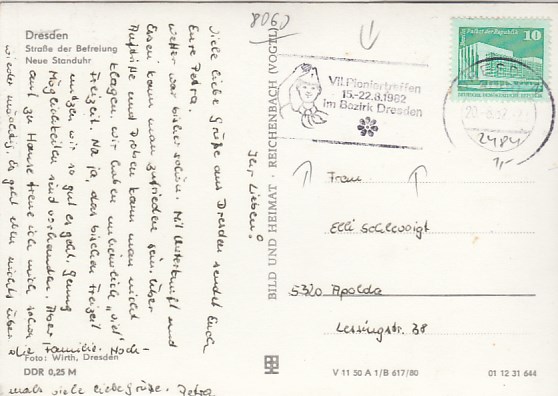 8060
Dresden
Straße der Befreiung
Neue Standuhr
Ihr Lieben!
Viele liebe Grüße aus Dresden sendet Euch
Eure Petra.
Wetter war bisher schön. Mit Unterkunft und
Essen kann man zufrieden sein. Über
Auftritte und Proben kann man nicht
klagen. Wir haben unheimlich „viel"
Freizeit. Na ja, das bischen Freizeit
nutzen wir so gut es geht. Genug
Möglichkeiten sind vorhanden. Aber
auf zu Hause freue ich mich schon
wieder mächtig. Es geht eben nichts über
die Familie. Noch-
mals viele liebe Grüße. Petra
Foto: Wirth, Dresden
DDR 0,25 M
BILD UND HEIMAT · REICHENBACH (VOGTL)
VII. Pioniertreffen
15.-22.8.1982
im Bezirk Dresden
Palast der Republik
10
Frau
Elli Schlevoigt
5320 Apolda
Lessingstr. 38
V 11 50 A 1/B 617/80
01 12 31 644